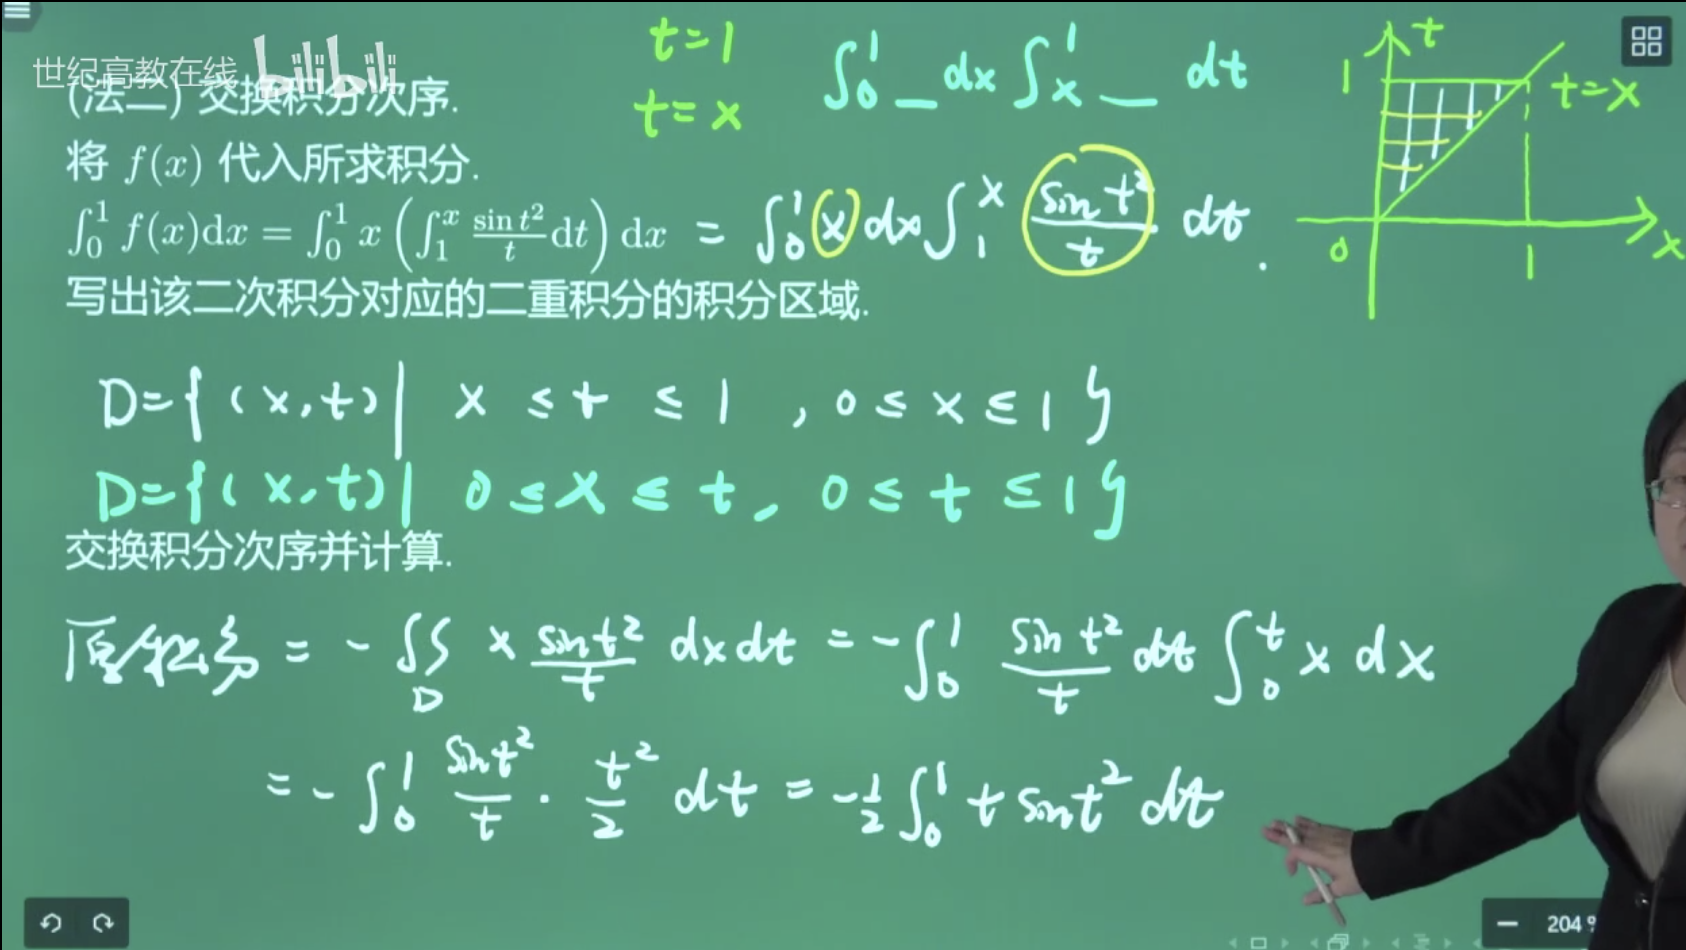 世纪高教在线 bilibili
t=1
t=x
∫₀¹ _ dx ∫ₓ¹ _ dt
t
1
t=x
0
1
x
(法二) 交换积分次序.
将 f(x) 代入所求积分.
∫₀¹ f(x)dx = ∫₀¹ x (∫₁ˣ (sin t²)/t dt) dx = ∫₀¹ x dx ∫₁ˣ (sin t²)/t dt.
写出该二次积分对应的二重积分的积分区域.
D={(x,t)| x ≤ t ≤ 1 , 0 ≤ x ≤ 1}
D={(x,t)| 0 ≤ x ≤ t, 0 ≤ t ≤ 1}
交换积分次序并计算.
原积分 = - ∬_D x (sin t²)/t dxdt = - ∫₀¹ (sin t²)/t dt ∫₀ᵗ x dx
= - ∫₀¹ (sin t²)/t · t²/2 dt = -1/2 ∫₀¹ t sin t² dt
204 %